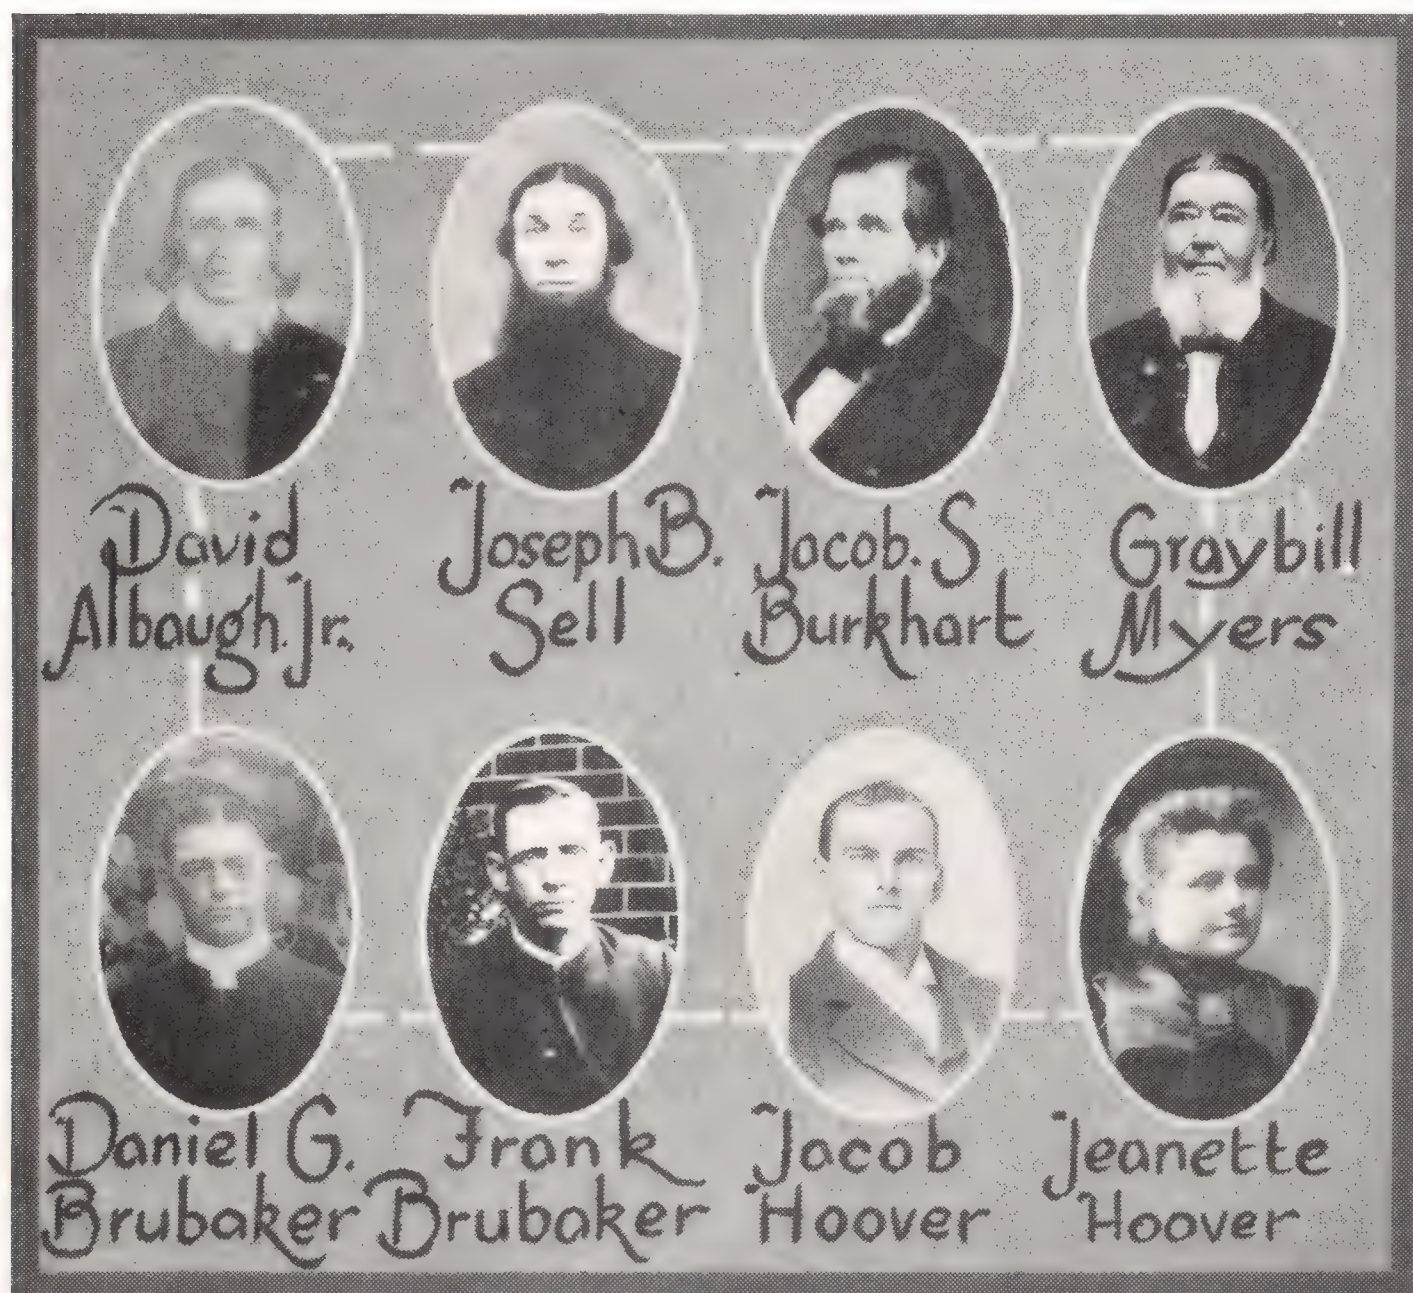 David
Albaugh. Jr.
Joseph B.
Sell
Jacob. S
Burkhart
Graybill
Myers
Daniel G.
Brubaker
Frank
Brubaker
Jacob
Hoover
Jeanette
Hoover